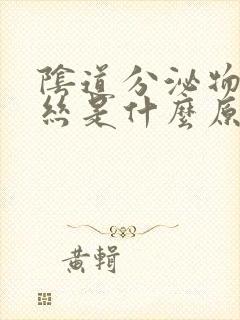 陰道分泌物
絲是什麼原
黃輯